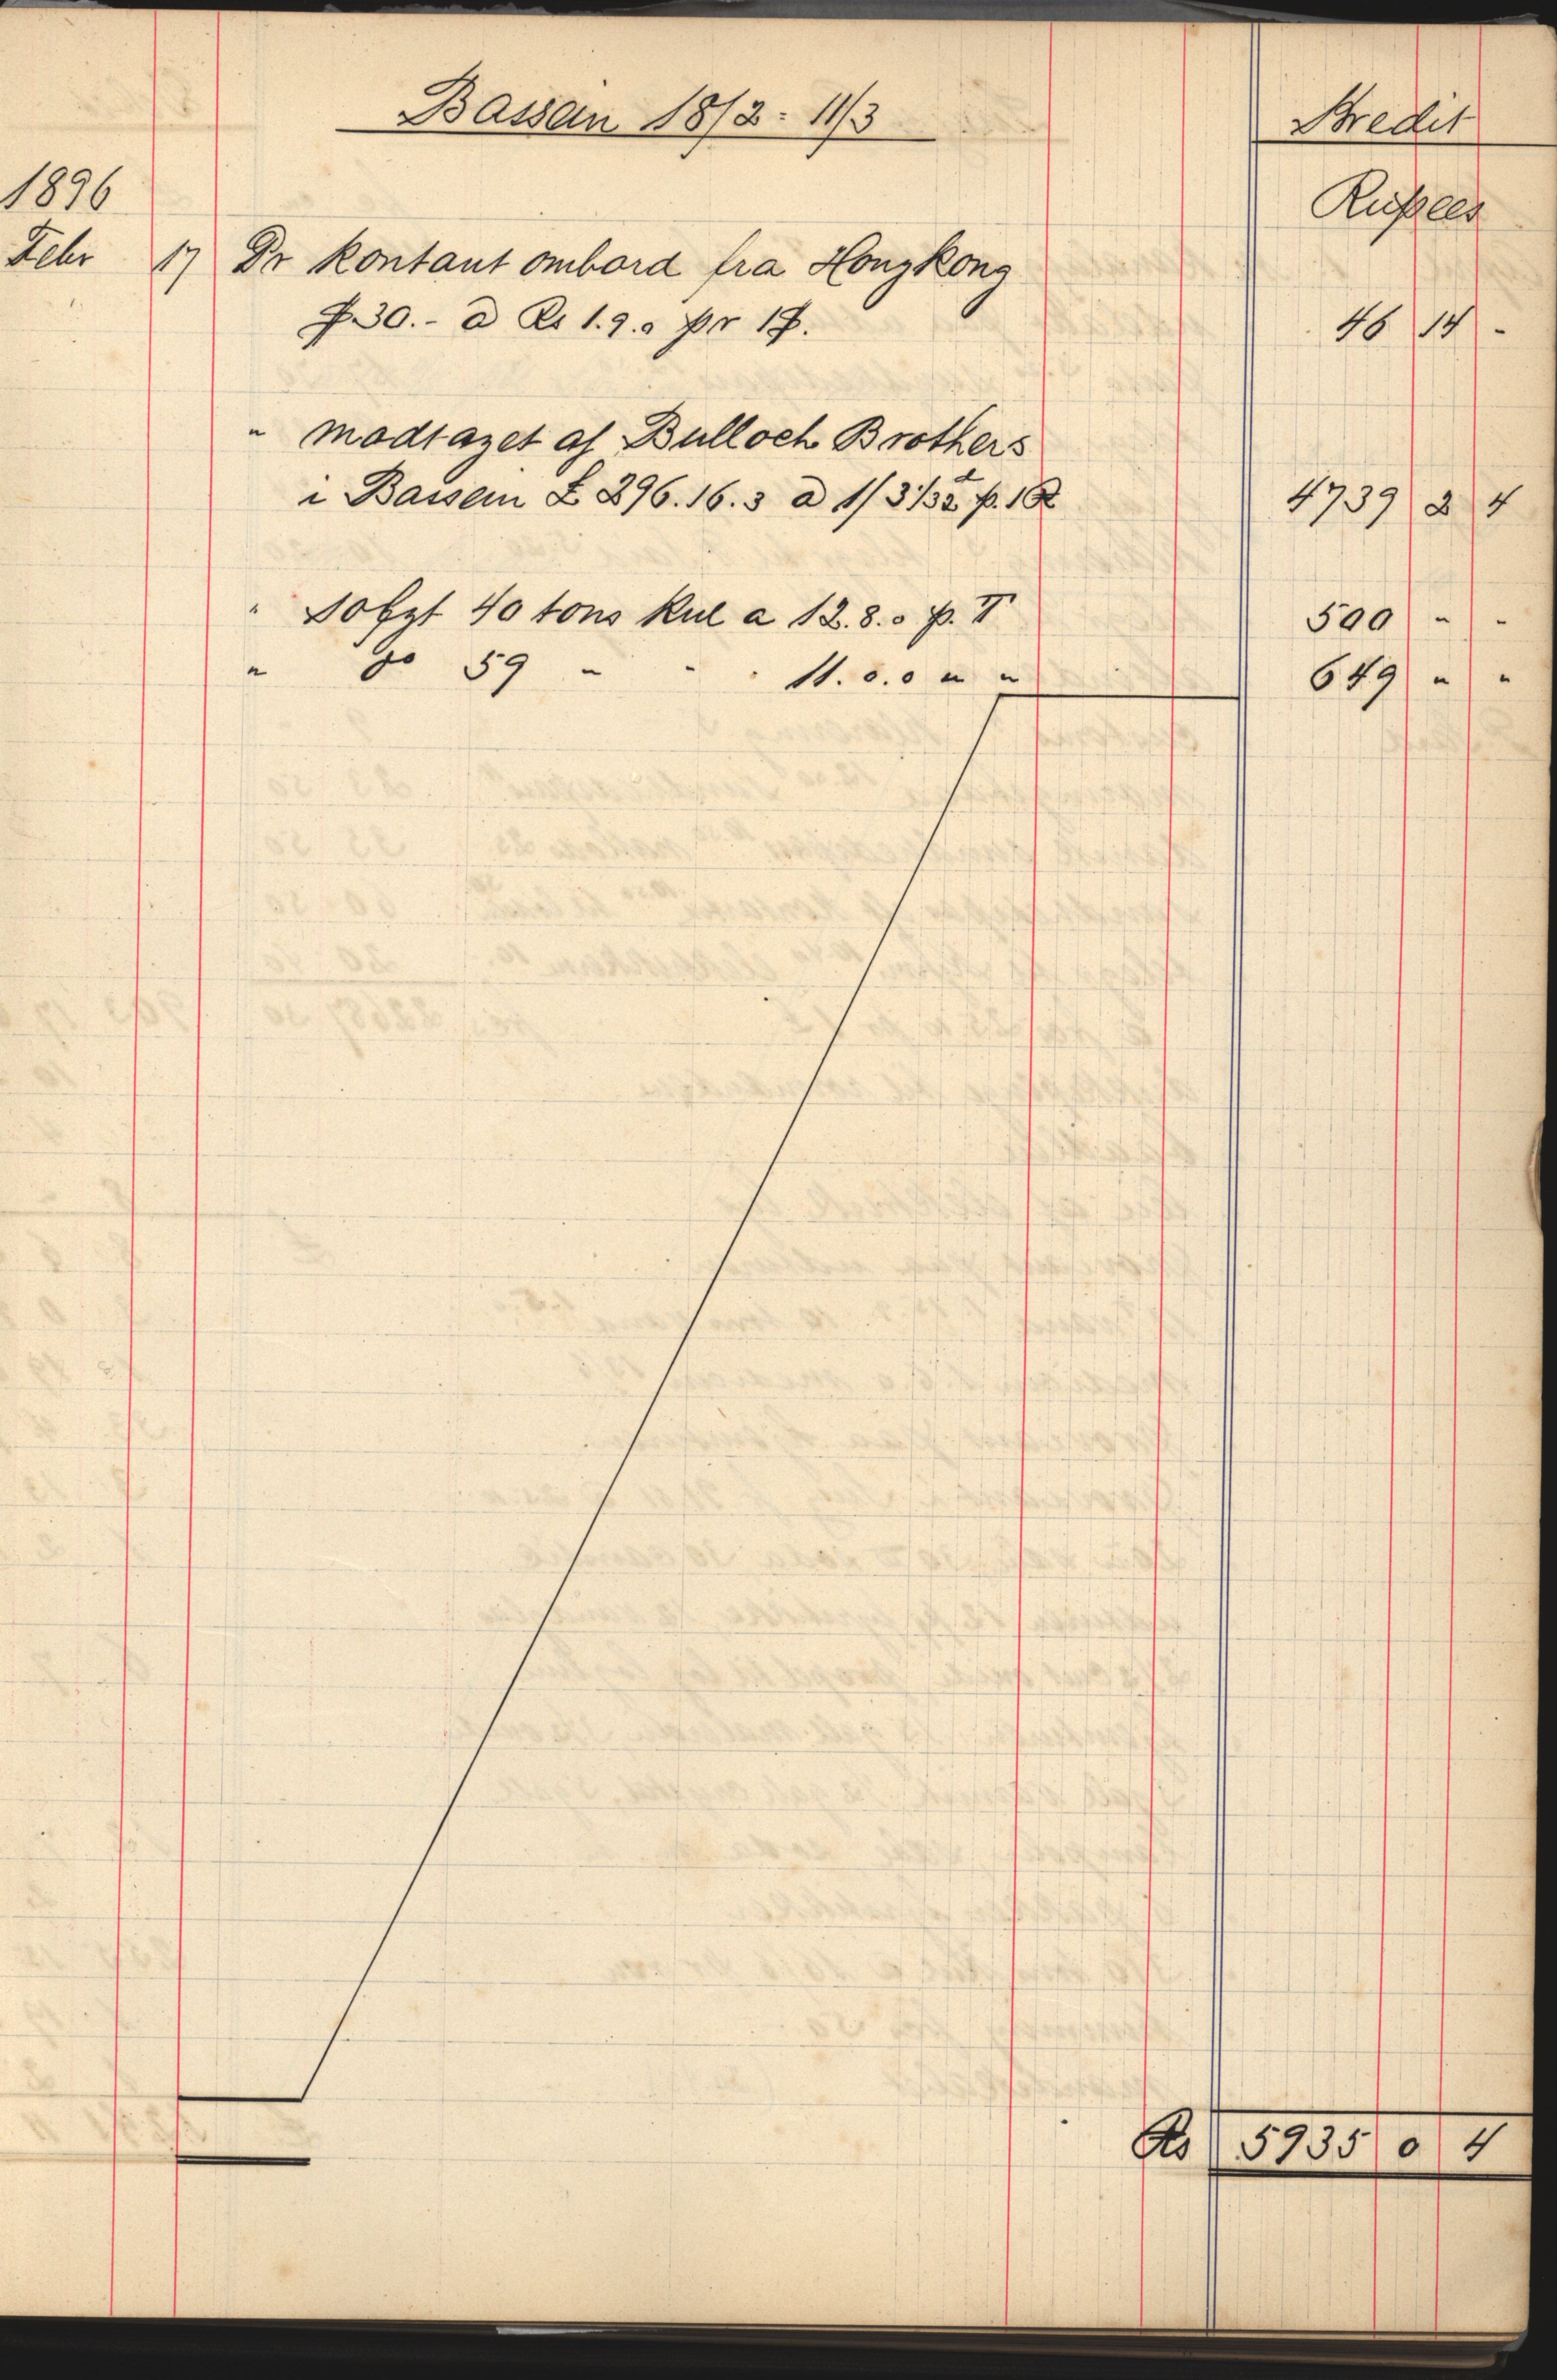 Bassein 18/2 - 11/3
Kredit
1896
Rupees
Febr 17 Pr kontant ombord fra Hongkong
$ 30.- a Rs 1.9.0 pr 1 $. 46 14 -
" modtaget af Bulloch Brothers
i Bassein £ 296.16.3 a 1/3 1/32 p. 1 R 4739 2 4
" Solgt 40 tons kul a 12.8.0 p. T 500 " -
" do 59 " " " 11.0.0 " " 649 " "
Rs 5935 0 4